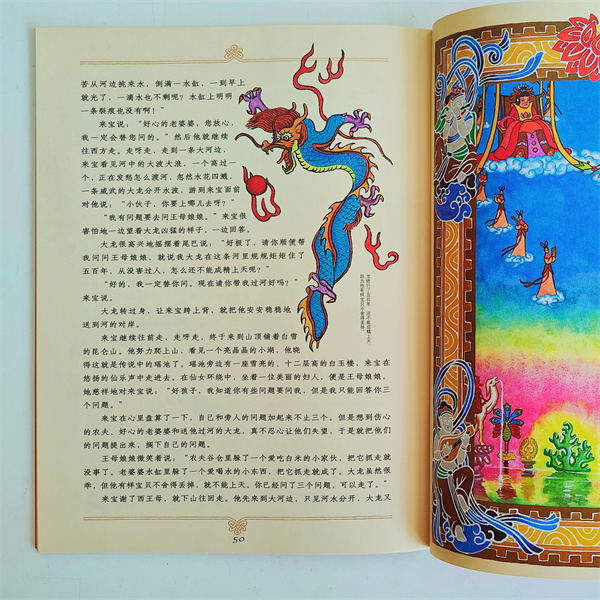 苦从河边挑来水，倒满一水缸，一到早上
就光了，一滴水也不剩呢？水缸上明明
一条裂痕也没有啊！”
来宝说：“好心的老婆婆，您放心，
我一定会替您问的。”然后他就继续
往西方走。走呀走，走到一条大河边，
来宝看见河中的大波大浪，一个高过一
个，正在发愁怎么渡河，忽然水花四溅，
一条威武的大龙分开水波，游到来宝面前
对他说：“小伙子，你要上哪儿去呀？”
“我有问题要去问王母娘娘。”来宝很
害怕地一边望着大龙凶猛的样子，一边回答。
大龙很高兴地摇摆着尾巴说：“好极了，请你顺便帮
我问问王母娘娘，就说我大龙在这条河里规规矩矩住了
五百年，从没害过人，怎么还不能成精上天呢？”
“好的，我一定替你问。现在请你带我过河好吗？”
来宝说。
大龙转过身，让来宝跨上背，就把他安安稳稳地
送到河的对岸。
来宝继续往前走，走呀走，终于来到山顶铺着白雪
的昆仑山。他努力爬上山，看见一个亮晶晶的小湖，他晓
得这就是传说中的瑶池了。瑶池旁边有一座雪亮的、十二层高的白玉楼，来宝在
悠扬的仙乐声中走进去。在仙女环绕中，坐着一位美丽的妇人，便是王母娘娘。
她慈祥地对来宝说：“好孩子，我知道你有些问题要问我，但是我只能回答你三
个问题。”
来宝在心里盘算了一下，自己和旁人的问题加起来不止三个。但是想到伤心
的农夫、好心的老婆婆和送他过河的大龙，真不忍心让他们失望，于是就把他们
的问题提出来，搁下自己的问题。
王母娘娘微笑着说：“农夫谷仓里躲了一个爱吃白米的小家伙，把它抓走就
没事了。老婆婆水缸里躲了一个爱喝水的小东西，把它抓走就成了。大龙虽然很
乖，但他有样宝贝不舍得丢掉，就不能上天。你已经问了三个问题，可以走了。”
来宝谢了西王母，就下山往回走。他先来到大河边，只见河水分开，大龙又
50